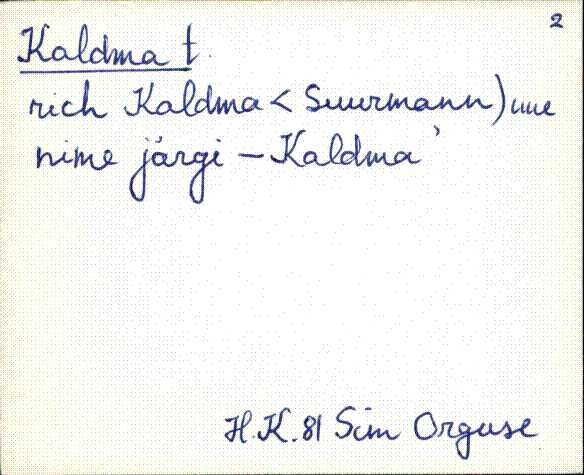 2
Kaldma t.
rich Kaldma < Suurmann) uue
nime järgi – Kaldma'
H.K. 81 Sim Orguse